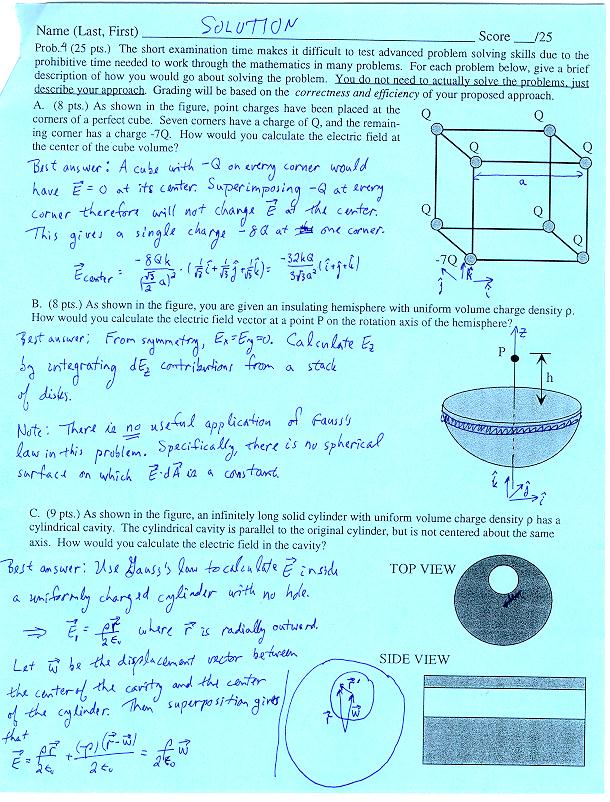 Name (Last, First) SOLUTION Score ___/25
Prob.4 (25 pts.) The short examination time makes it difficult to test advanced problem solving skills due to the
prohibitive time needed to work through the mathematics in many problems. For each problem below, give a brief
description of how you would go about solving the problem. You do not need to actually solve the problems, just
describe your approach. Grading will be based on the correctness and efficiency of your proposed approach.
A. (8 pts.) As shown in the figure, point charges have been placed at the
corners of a perfect cube. Seven corners have a charge of Q, and the remain-
ing corner has a charge -7Q. How would you calculate the electric field at
the center of the cube volume?
Best answer: A cube with -Q on every corner would
have E⃗ = 0 at its center. Superimposing -Q at every
corner therefore will not change E⃗ at the center.
This gives a single charge -8Q at one corner.
E⃗center = -8Qk/(√3/2 a)² · (1/√3 î + 1/√3 ĵ + 1/√3 k̂) = -32kQ/3√3a² (î+ĵ+k̂)
Q
Q
Q
Q
a
Q
Q
Q
-7Q
k̂
ĵ
î
B. (8 pts.) As shown in the figure, you are given an insulating hemisphere with uniform volume charge density ρ.
How would you calculate the electric field vector at a point P on the rotation axis of the hemisphere?
Best answer: From symmetry, Ex=Ey=0. Calculate Ez
by integrating dEz contributions from a stack
of disks.
Note: There is no useful application of Gauss's
law in this problem. Specifically, there is no spherical
surface on which E⃗·dA⃗ is a constant.
z
P
h
k̂
ĵ
î
C. (9 pts.) As shown in the figure, an infinitely long solid cylinder with uniform volume charge density ρ has a
cylindrical cavity. The cylindrical cavity is parallel to the original cylinder, but is not centered about the same
axis. How would you calculate the electric field in the cavity?
Best answer: Use Gauss's law to calculate E⃗ inside
a uniformly charged cylinder with no hole.
⇒ E⃗₁ = ρr⃗/2ε₀ where r⃗ is radially outward.
Let w⃗ be the displacement vector between
the center of the cavity and the center
of the cylinder. Then superposition gives
that
E⃗ = ρr⃗/2ε₀ + (-ρ)(r⃗-w⃗)/2ε₀ = ρ/2ε₀ w⃗
TOP VIEW
SIDE VIEW
r⃗'
r⃗
w⃗